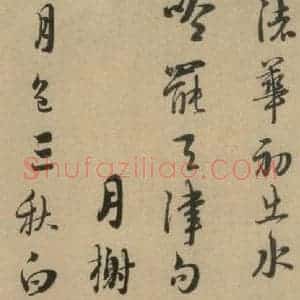 渚華初出水
吟罷天津句
月榭
月色三秋白
Shufaziliao.com